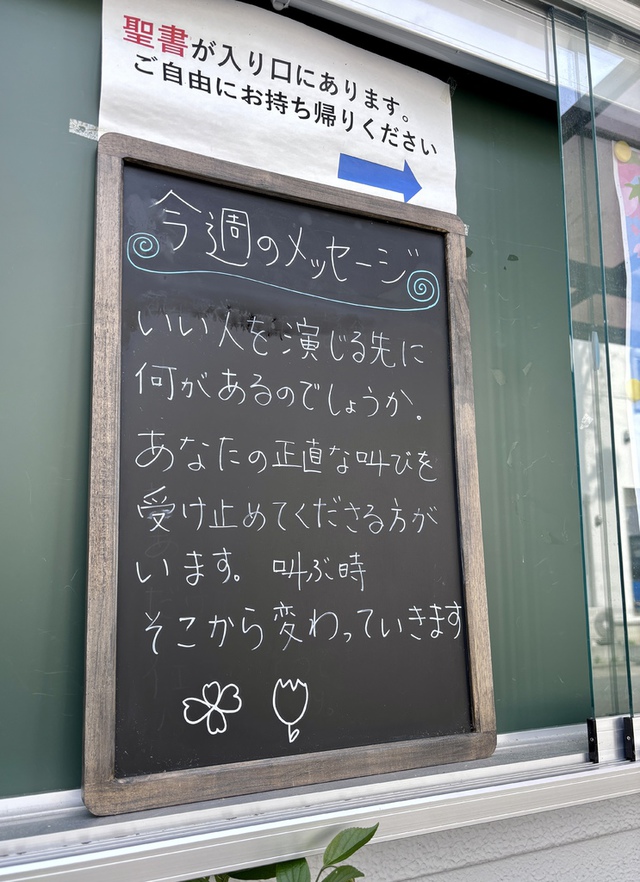 聖書が入り口にあります。
ご自由にお持ち帰りください
今週のメッセージ
いい人を演じる先に
何があるのでしょうか.
あなたの正直な叫びを
受け止めてくださる方が
います。叫ぶ時
そこから変わっていきます